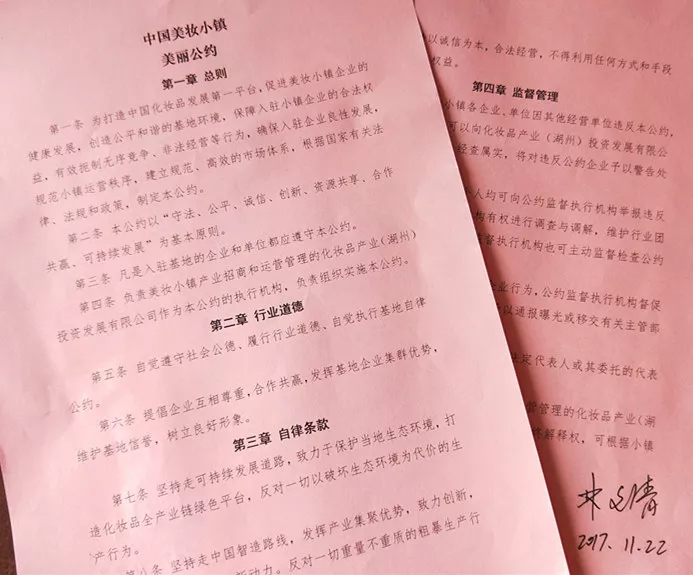 中国美妆小镇
美丽公约
第一章 总则
第一条 为打造中国化妆品发展第一平台，促进美妆小镇企业的
健康发展，创造公平和谐的基地环境，保障入驻小镇企业的合法权
益，有效扼制无序竞争、非法经营等行为，确保入驻企业良性发展，
规范小镇运营秩序，建立规范、高效的市场体系，根据国家有关法
律、法规和政策，制定本公约。
第二条 本公约以“守法、公平、诚信、创新、资源共享、合作
共赢、可持续发展”为基本原则。
第三条 凡是入驻基地的企业和单位都应遵守本公约。
第四条 负责美妆小镇产业招商和运营管理的化妆品产业(湖州)
投资发展有限公司作为本公约的执行机构，负责组织实施本公约。
第二章 行业道德
第五条 自觉遵守社会公德、履行行业道德、自觉执行基地自律
公约。
第六条 提倡企业互相尊重，合作共赢，发挥基地企业集群优势，
维护基地信誉，树立良好形象。
第三章 自律条款
第七条 坚持走可持续发展道路，致力于保护当地生态环境，打
造化妆品全产业链绿色平台，反对一切以破坏生态环境为代价的生
产行为。
第八条 坚持走中国智造路线，发挥产业集聚优势，致力创新，
新动力。反对一切重量不重质的粗暴生产行
以诚信为本，合法经营，不得利用任何方式和手段
权益。
第四章 监督管理
小镇各企业、单位因其他经营单位违反本公约，
可以向化妆品产业（湖州）投资发展有限公
经查属实，将对违反公约企业予以警告处
个人均可向公约监督执行机构举报违反
构有权进行调查与调解，维护行业团
督执行机构也可主动监督检查公约
业行为，公约监督执行机构督促
以通报曝光或移交有关主管部
法定代表人或其委托的代表
营管理的化妆品产业(湖
终解释权，可根据小镇
2017.11.22